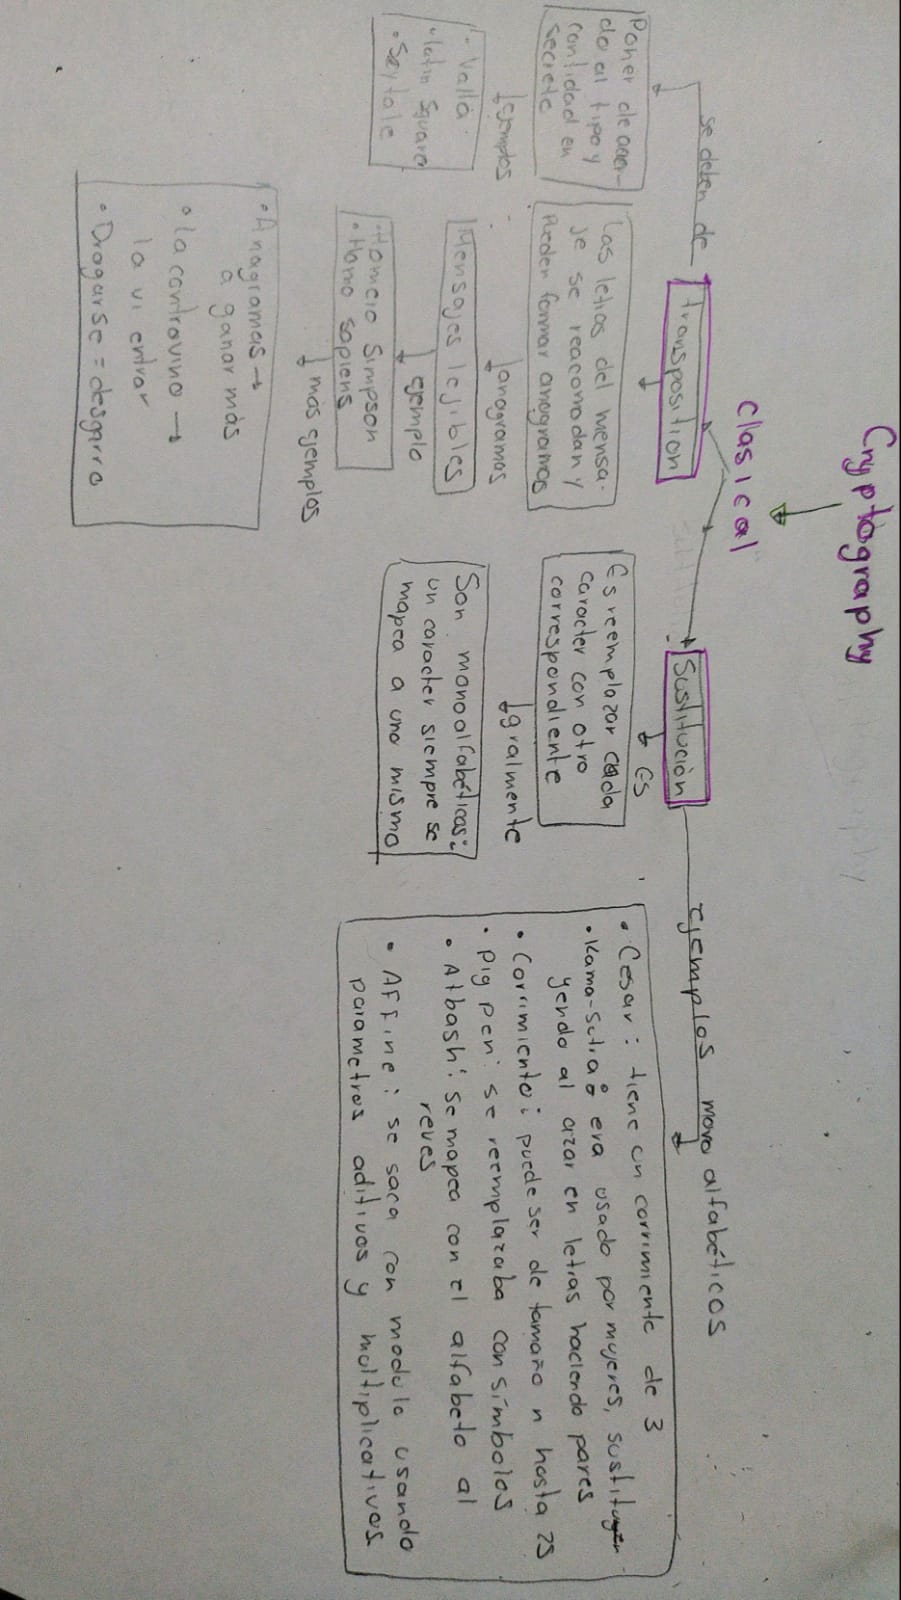 Cryptography
clasical
se deben de
transposition
Sustitución
ejemplos mono alfabéticos
Poner de acuer-
do al tipo y
cantidad en
secreto
ejemplos
- Valla
• latin Square
• Scytale
Las letras del mensa-
je se reacomodan y
Pueden formar anagramas
anagramas
Mensajes lejibles
ejemplo
• Homero Simpson
• Homo sapiens
más ejemplos
• Anagramas →
a ganar más
• la contravino →
la vi entrar
• Drogarse = desgarro
Es
Es reemplazar cada
caracter con otro
correspondiente
gralmente
Son monoalfabéticas:
un caracter siempre se
mapea a uno mismo
• Cesar: tiene un corrimiento de 3
• Kama-Sutra: era usado por mujeres, sustitu
yendo al azar en letras haciendo pares
• Corrimiento: puede ser de tamaño n hasta 25
• pig pen: se reemplazaba con símbolos
• Atbash: se mapea con el alfabeto al
reves
• Affine: se saca con modulo usando
parametros aditivos y multiplicativos